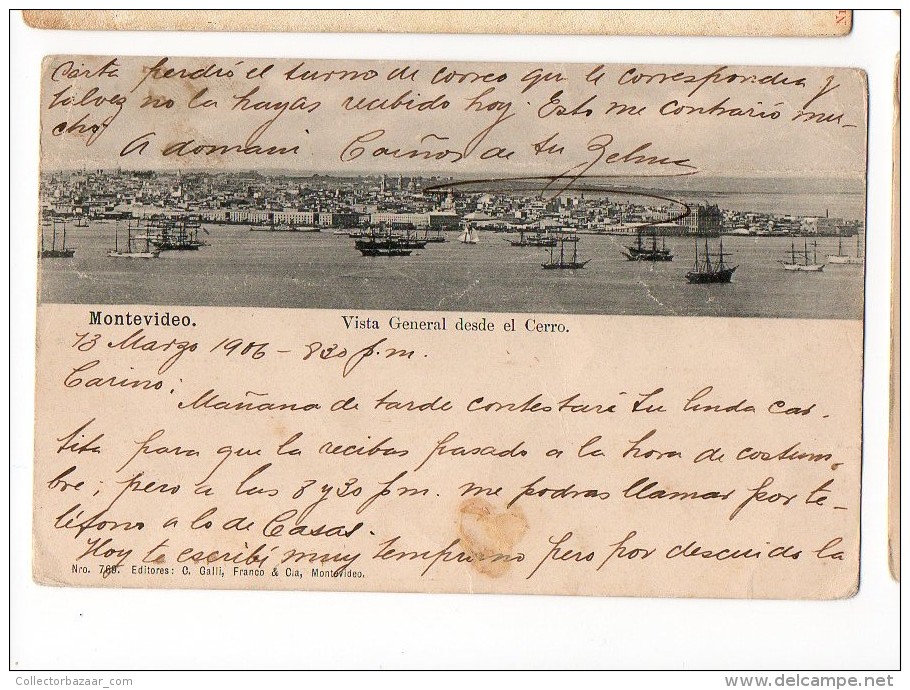 carta perdió el turno de correo que le correspondia y
talvez no la hayas recibido hoy. Esto me contrarió mu-
cho.
A domani. Cariños de tu
Montevideo.
Vista General desde el Cerro.
13 Marzo 1906 - 8 30 p.m.
Carino:
Mañana de tarde contestaré tu linda car-
tita para que la recibas pasado a la hora de costum-
bre; pero a las 8 y 30 p.m. me podras llamar por te-
léfono a lo de Casal.
Hoy te escribí muy temprano pero por descuido la
Nro. 769. Editores: C. Galli, Franco & Cia, Montevideo.
CollectorBazaar.com
www.delcampe.net